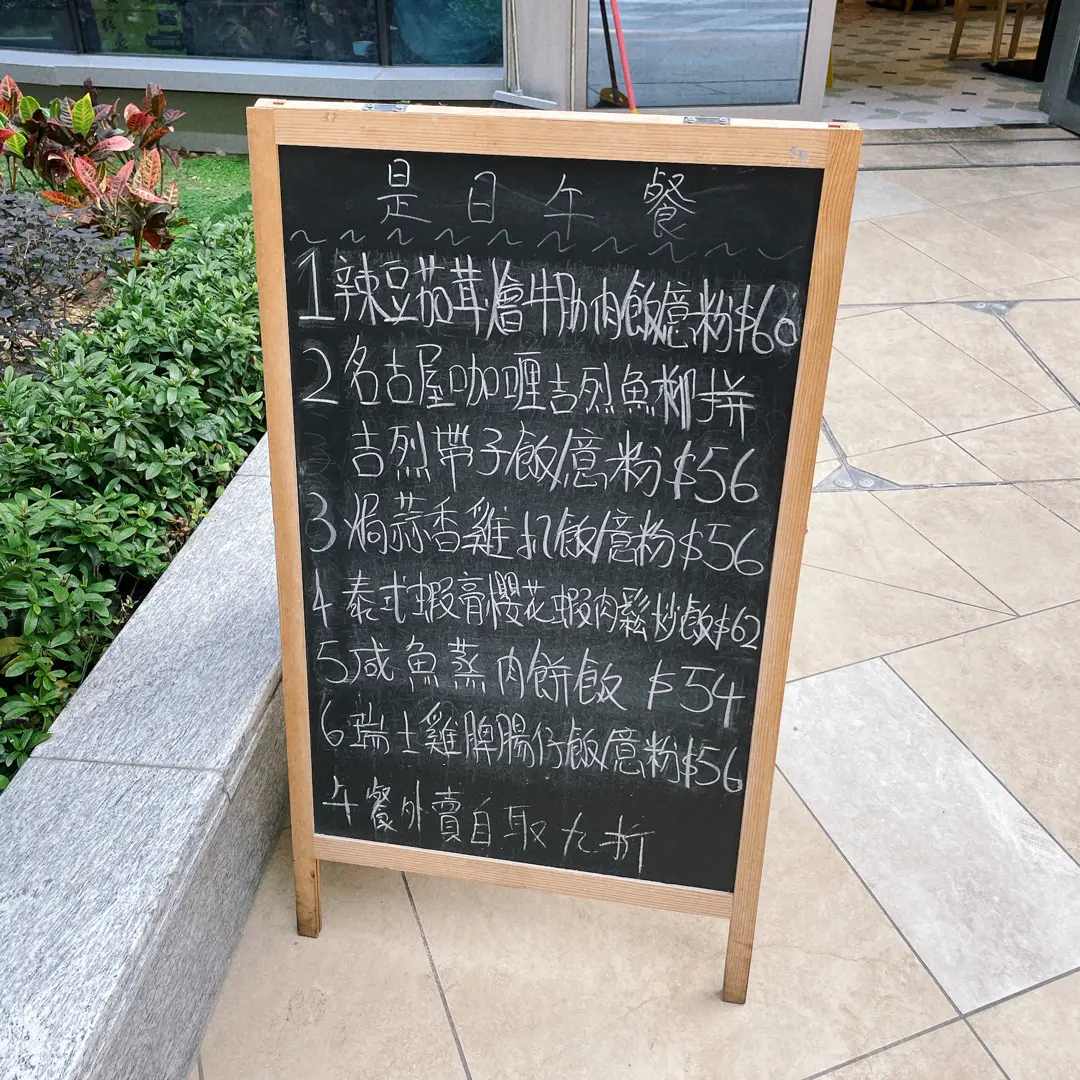 是日午餐
1 辣豆茄茸燴牛肋肉飯意粉$60
2 名古屋咖喱吉烈魚柳拼
吉烈帶子飯意粉$56
3 焗蒜香雞扒飯意粉$56
4 泰式蝦膏櫻花蝦肉鬆炒飯$62
5 咸魚蒸肉餅飯 $54
6 瑞士雞脾腸仔飯意粉$56
午餐外賣自取九折